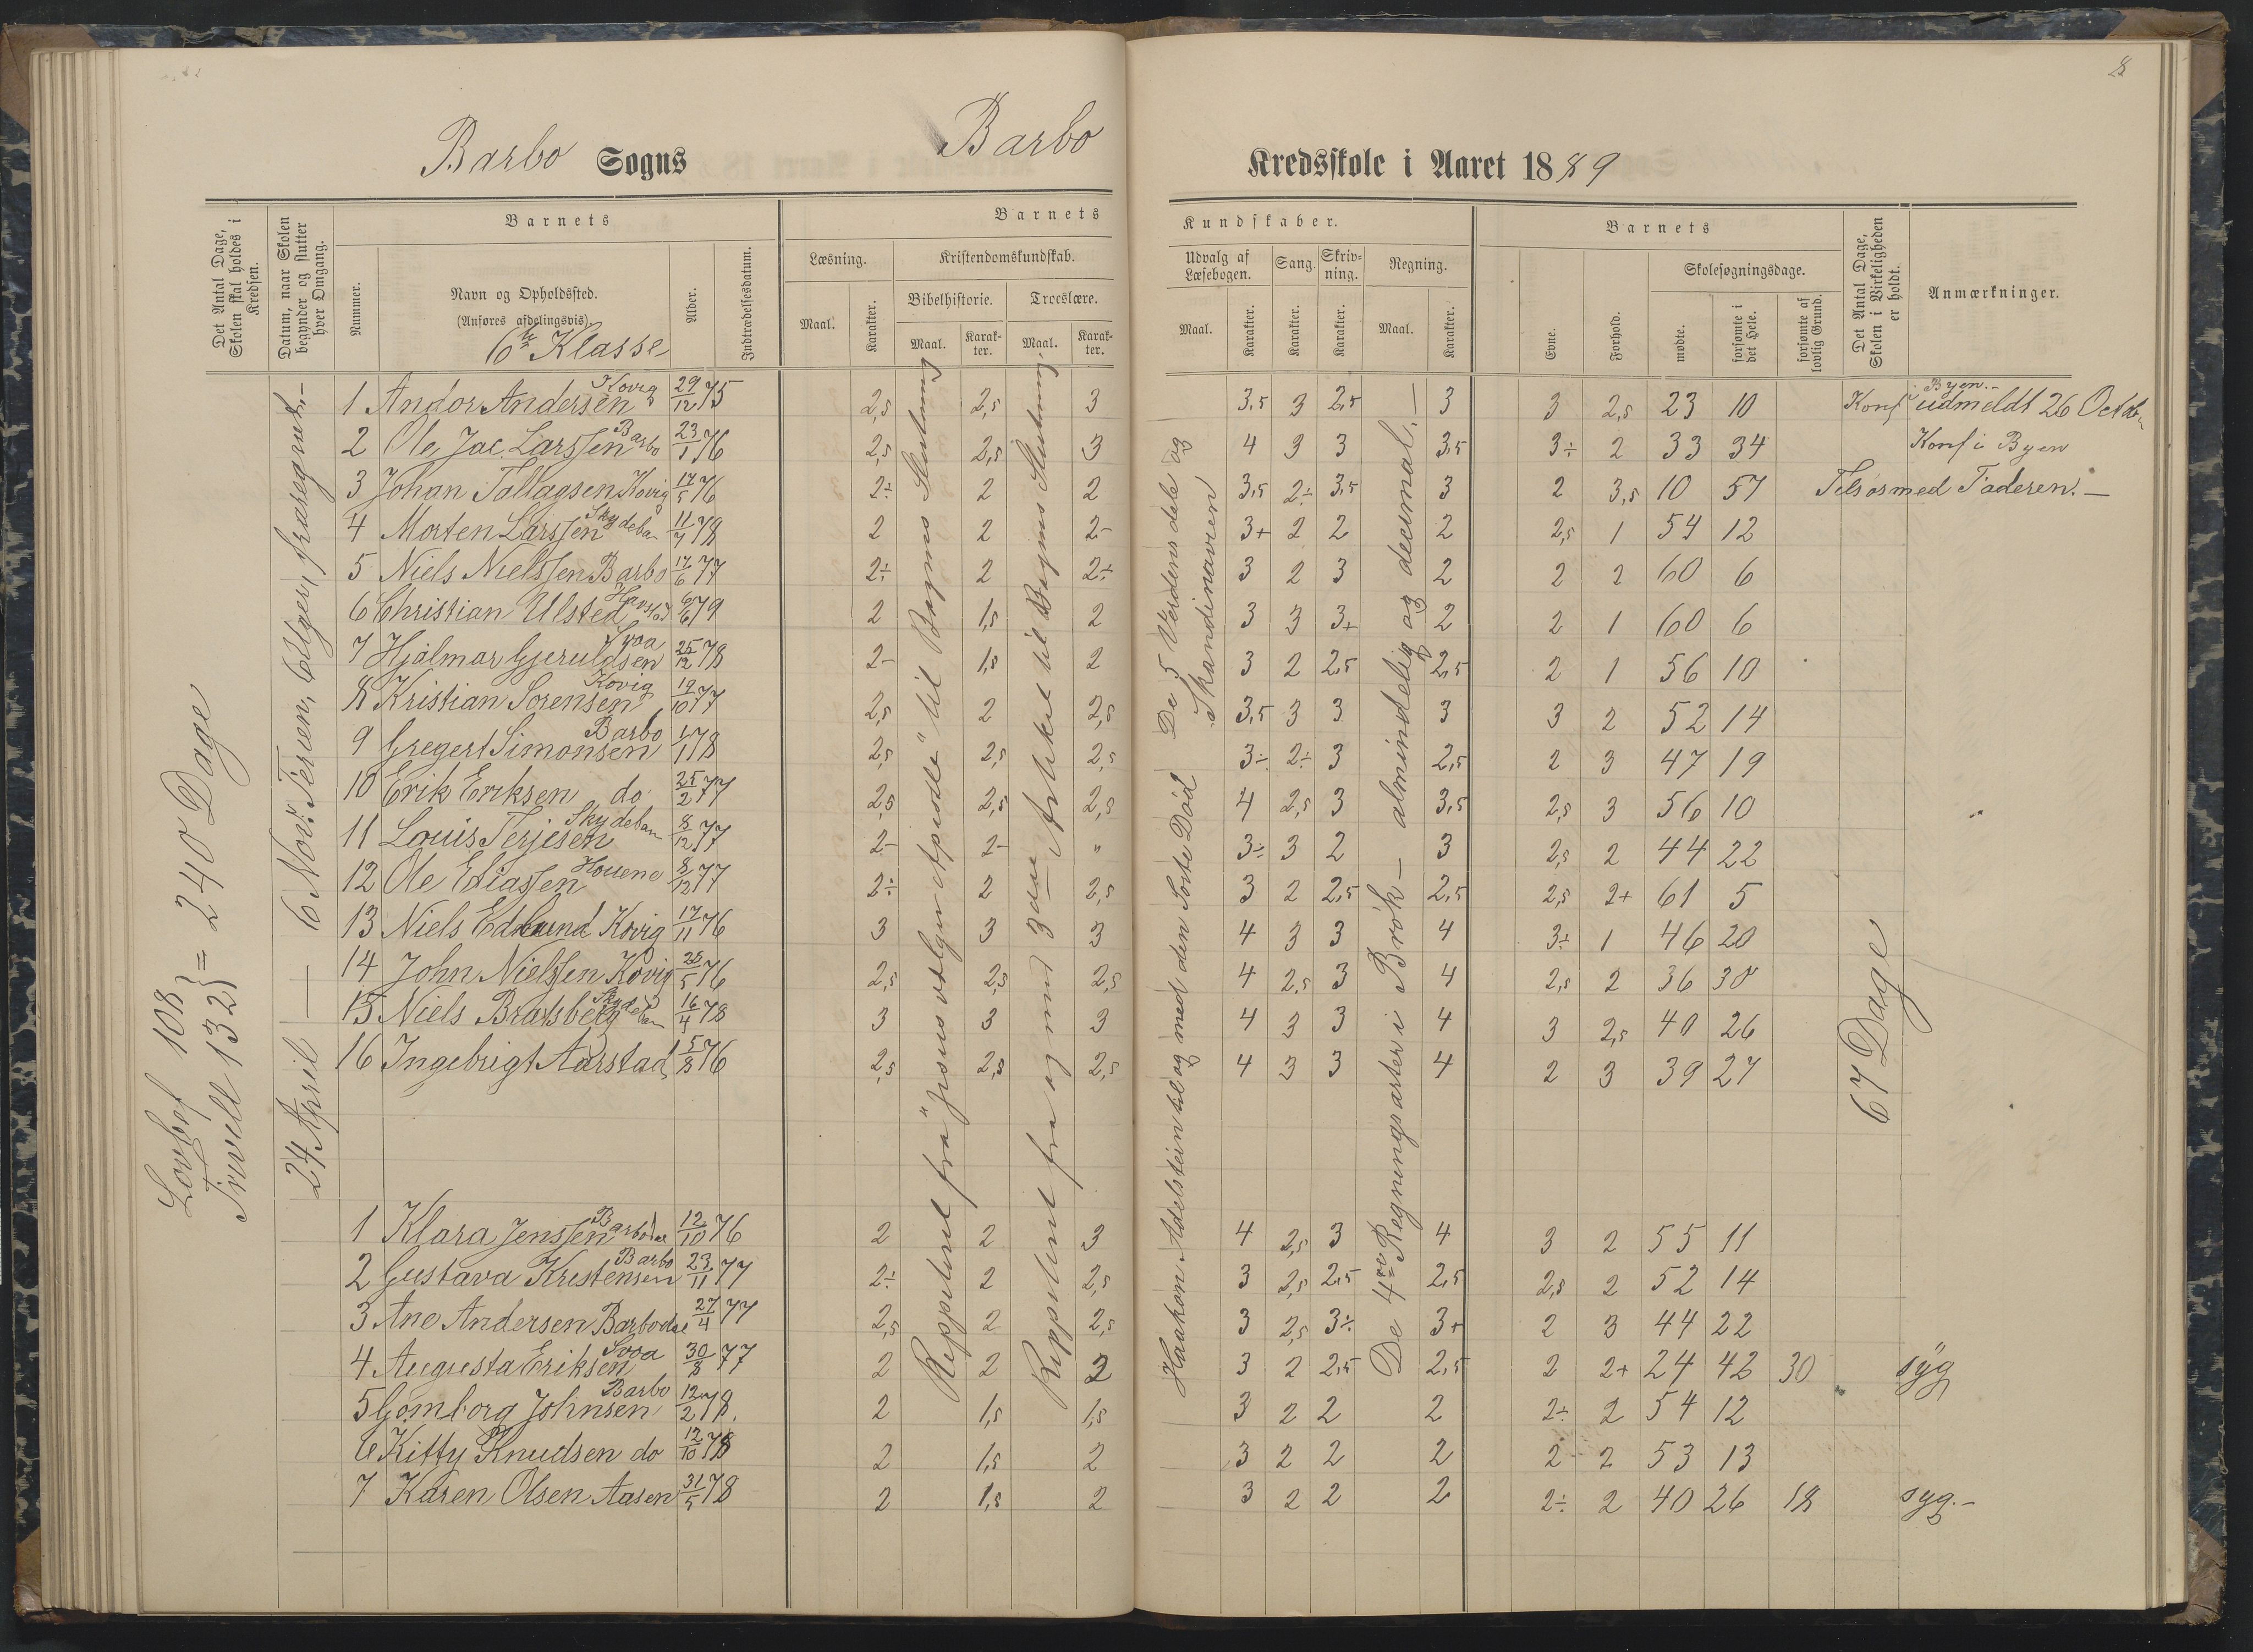 8
Barbo Sogns
Barbo
Kredsskole i Aaret 1889
Det Antal Dage, Skolen skal holdes i Kredsen.
Datum, naar Skolen begynder og slutter hver Omgang.
Barnets
Nummer.
Navn og Opholdssted.
(Anføres afdelingsvis).
6te Klasse
Alder.
Indtrædelsesdatum.
Barnets
Læsning.
Maal.
Karakter.
Kristendomskundskab.
Bibelhistorie.
Maal.
Karakter.
Troeslære.
Maal.
Karakter.
Kundskaber.
Udvalg af Læsebogen.
Maal.
Karakter.
Sang.
Karakter.
Skrivning.
Karakter.
Regning.
Maal.
Karakter.
Barnets
Evne.
Forhold.
Skolesøgningsdage.
mødte.
forsømte i det Hele.
forsømte af lovlig Grund.
Det Antal Dage, Skolen i Virkeligheden er holdt.
Anmærkninger.
Lovbef 108
Frivill 132 } = 240 Dage
24 April — 6 Novr. Ferien, 6 Uger, fraregnet.—
Reppetent fra "Jesus vælger Apostle" til Bogens Slutning
Reppetent fra og med 3die Artikel til Bogens Slutning.
Haakon Adelstein til og med den Sorte Død
De 5 Verdensdele og
Skandinavien
De 4re Regningsarter i Brøk — almindelig og decimal. —
67 Dage
1 Andor Andersen Kovig 29/12 75 2,5 2,5 3 3,5 3 2,5 3 3 2,5 23 10 Konf i Byen.- udmeldt 26 Octbr
2 Ole Jac. Larssen Barbo 23/1 76 2,5 2,5 3 4 3 3 3,5 3÷ 2 33 34 Konf i Byen
3 Johan Tallagsen Kovig 17/5 76 2÷ 2 2 3,5 2÷ 3,5 3 2 3,5 10 57 Tilsos med Faderen.—
4 Morten Larssen Skydeban 11/7 78 2 2 2- 3+ 2 2 2 2,5 1 54 12
5 Niels Nielssen Barbo 17/6 77 2÷ 2 2÷ 3 2 3 2 2 2 60 6
6 Christian Ulsted Havstad 6/6 79 2 1,5 2 3 3 3+ 2 2 1 60 6
7 Hjalmar Gjeruldsen Svoa 25/12 78 2- 1,5 2 3 2 2,5 2,5 2 1 56 10
8 Kristian Sorensen Kovig 19/10 77 2,5 2 2,5 3,5 3 3 3 3 2 52 14
9 Gregert Simonsen Barbo 1/1 78 2,5 2,5 2,5 3÷ 2÷ 3 2,5 2 3 47 19
10 Erik Eriksen do 25/2 77 2,5 2,5 2,5 4 2,5 3 3,5 2,5 3 56 10
11 Louis Terjesen Skydeban 8/12 77 2- 2- " 3÷ 3 2 3 2,5 2 44 22
12 Ole Eliassen Houene 8/12 77 2÷ 2 2,5 3 2 2,5 2,5 2,5 2+ 61 5
13 Niels Edlund Kovig 17/11 76 3 3 3 4 3 3 4 3÷ 1 46 20
14 John Nielssen Kovig 28/5 76 2,5 2,5 2,5 4 2,5 3 4 2,5 2 36 30
15 Niels Bratsberg Skydeban 16/4 78 3 3 3 4 3 3 4 3 2,5 40 26
16 Ingebrigt Aarstad 5/8 76 2,5 2,5 2,5 4 3 3 4 2 3 39 27
1 Klara Jenssen Barbodal 12/10 76 2 2 3 4 2,5 3 4 3 2 55 11
2 Gustava Kristensen Barbo 23/11 77 2÷ 2 2,5 3 2,5 2,5 2,5 2,5 2 52 14
3 Ane Andersen Barbodal 27/4 77 2,5 2 2,5 3 2,5 3÷ 3+ 2 3 44 22
4 Augusta Eriksen Svoa 30/8 77 2 2 2 3 2 2,5 2,5 2 2+ 24 42 30 syg
5 Gomborg Johnsen Barbo 12/2 78. 2 1,5 1,5 3 2 2 2 2÷ 2 54 12
6 Kitty Knudsen do 12/10 78 2 1,5 2 3 2 2 2 2- 2 53 13
7 Karen Olsen Aasen 31/5 78 2 1,5 2 3 2 2 2 2÷ 2 40 26 18 syg.-